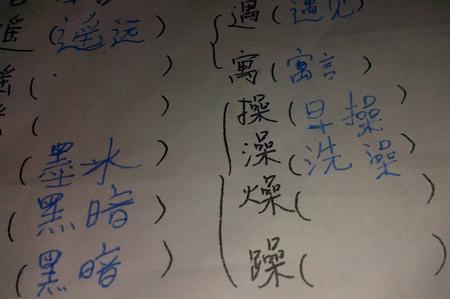 遥(遥远)
(墨水)
(黑暗)
(黑暗)
遇(遇见)
寓(寓言)
操(早操)
澡(洗澡)
燥(
躁( )